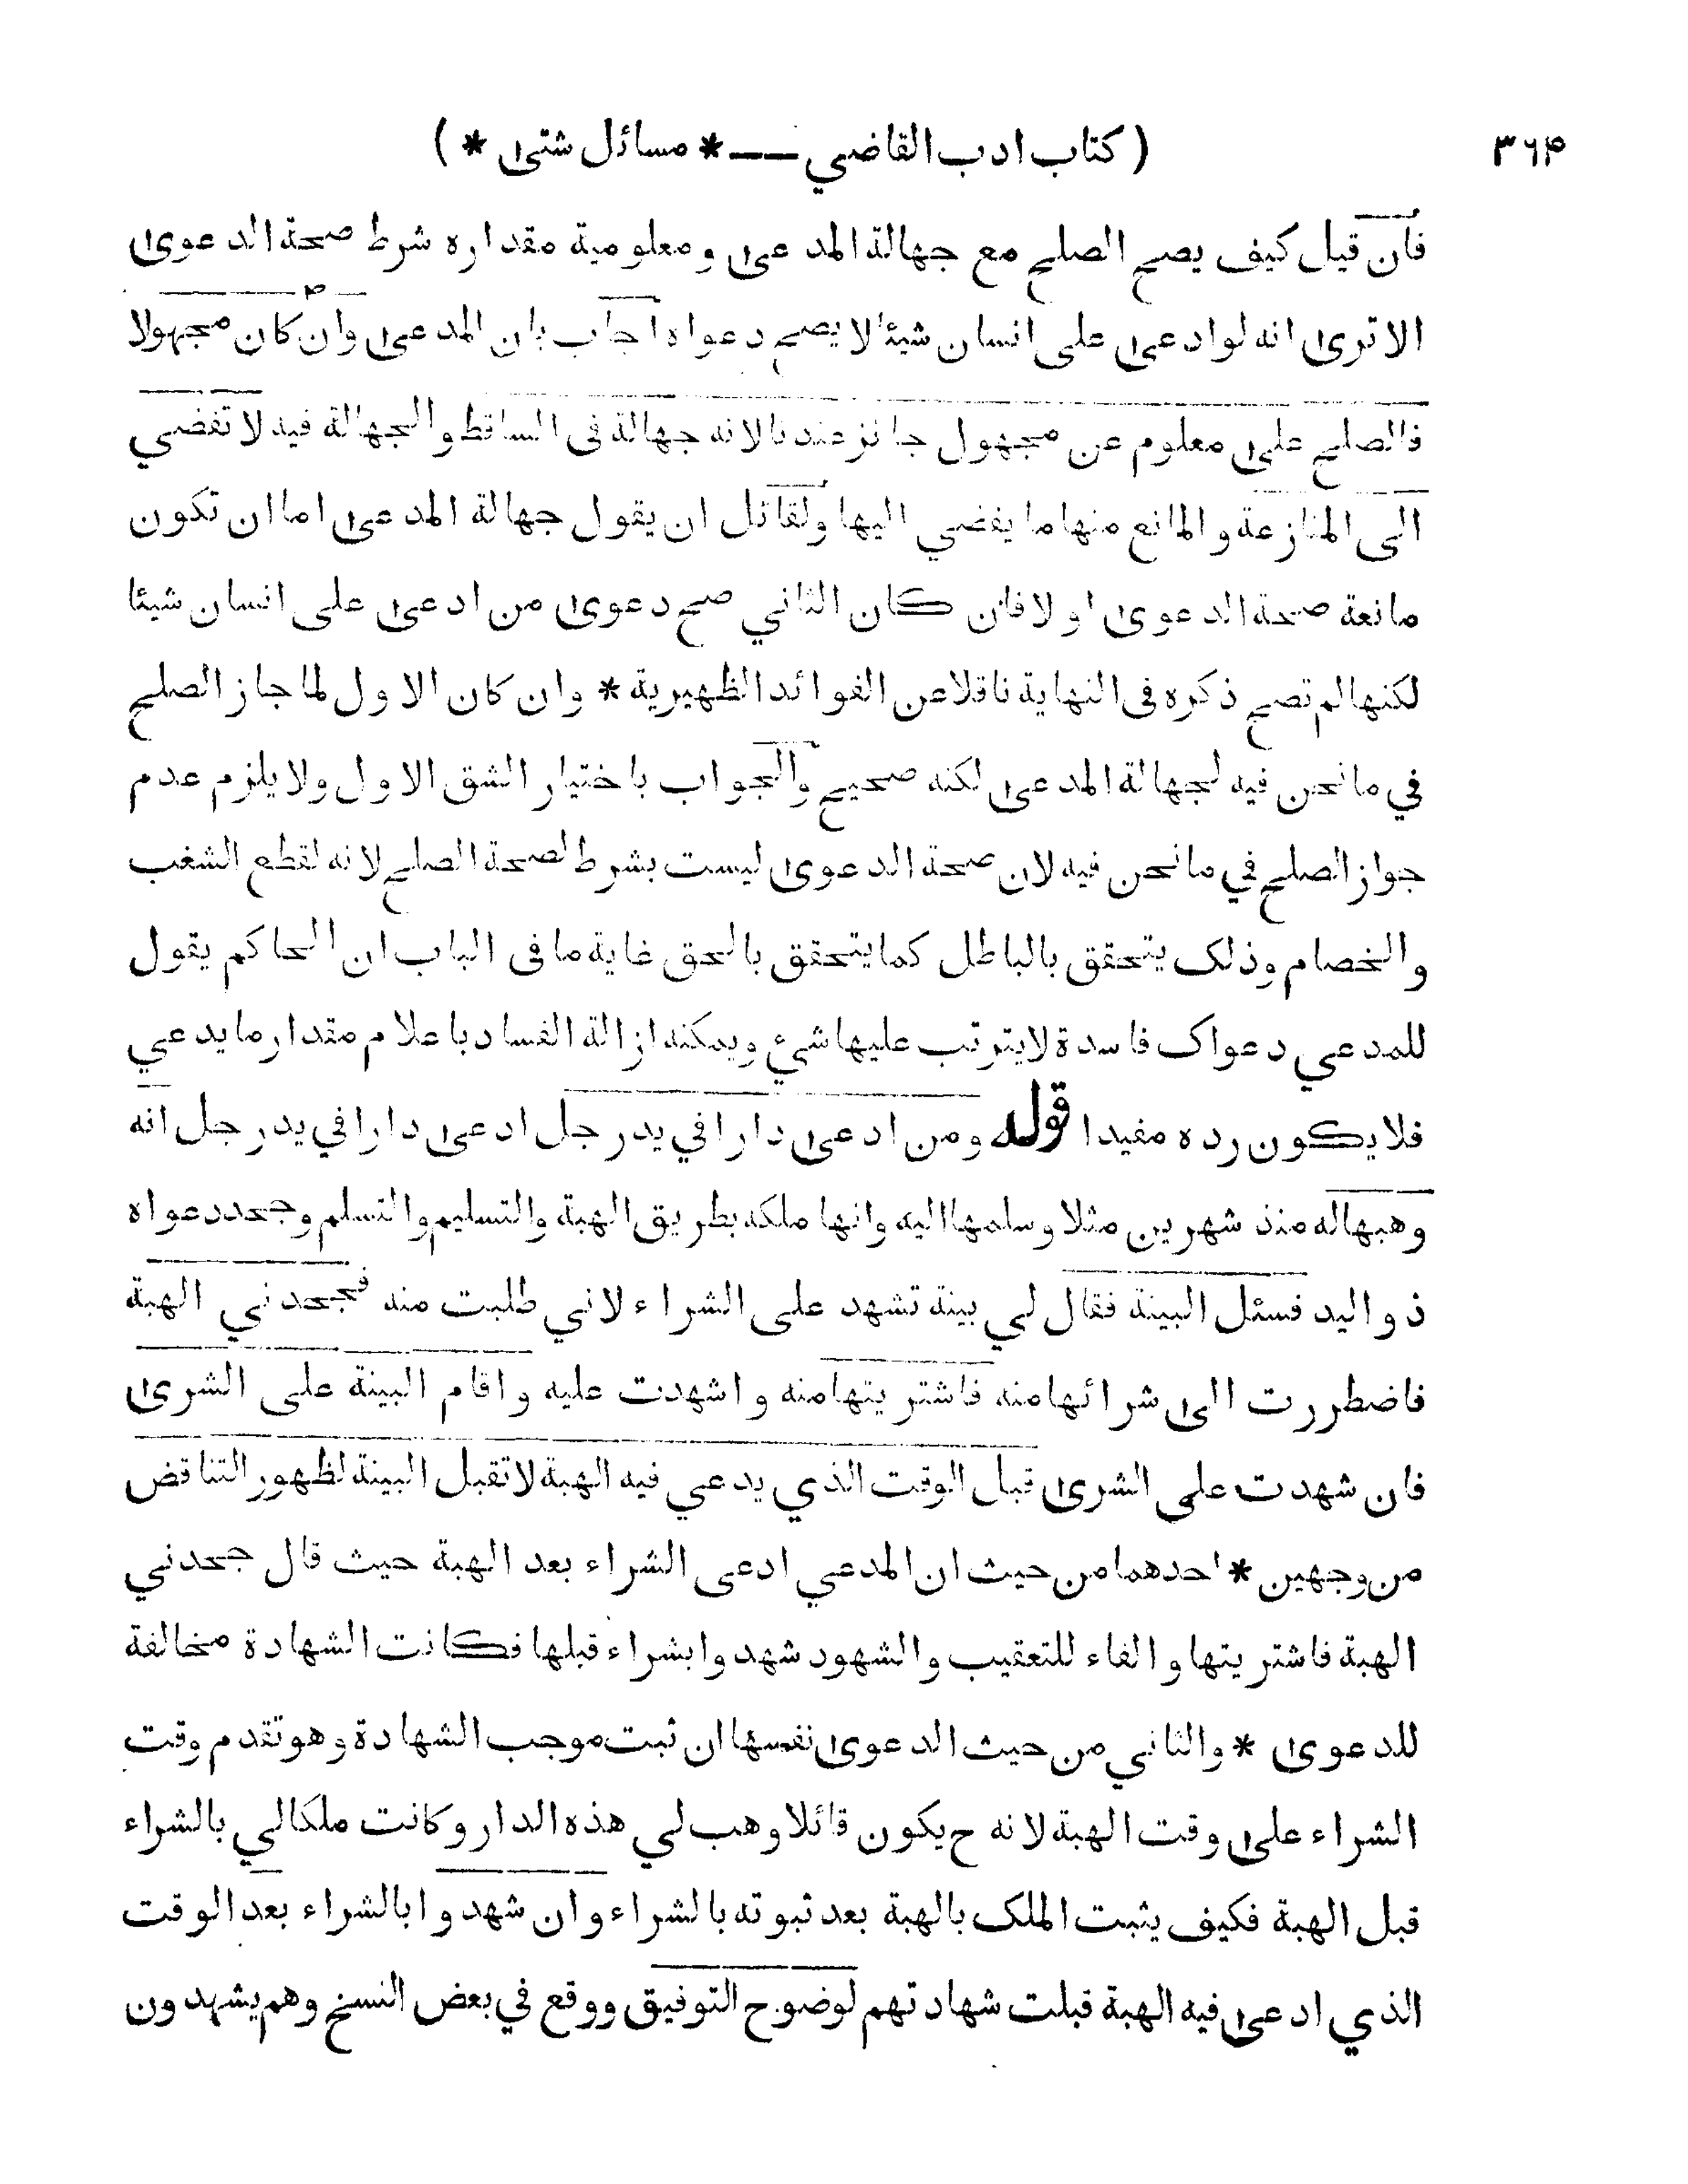 ۳۶۴
( كتاب ادب القاضي —— * مسائل شتى * )
فان قيل كيف يصح الصلح مع جهالة المدعى ومعلومية مقداره شرط صحة الدعوى
الا ترى انه لو ادعى على انسان شيئا لا يصح دعواه اجاب بان المدعى وان كان مجهولا
فالصلح على معلوم عن مجهول جائز عندنا لانه جهالة فى الساقط والجهالة فيه لا تفضي
الى المنازعة والمانع منها ما يفضي اليها ولقائل ان يقول جهالة المدعى اما ان تكون
مانعة صحة الدعوى او لا فان كان الثاني صح دعوى من ادعى على انسان شيئا
لكنها لم تصح ذكره فى النهاية ناقلا عن الفوائد الظهيرية * وان كان الاول لما جاز الصلح
في ما نحن فيه لجهالة المدعى لكنه صحيح والجواب باختيار الشق الاول ولا يلزم عدم
جواز الصلح في ما نحن فيه لان صحة الدعوى ليست بشرط لصحة الصلح لانه لقطع الشغب
والخصام وذلك يتحقق بالباطل كما يتحقق بالحق غاية ما فى الباب ان الحاكم يقول
للمدعي دعواك فاسدة لا يترتب عليها شيء ويمكنه ازالة الفساد باعلام مقدار ما يدعي
فلا يكون رده مفيدا قوله ومن ادعى دارا في يد رجل ادعى دارا في يد رجل انه
وهبها له منذ شهرين مثلا وسلمها اليه وانها ملكه بطريق الهبة والتسليم والتسلم وجحد دعواه
ذو اليد فسئل البينة فقال لي بينة تشهد على الشراء لاني طلبت منه فجحدني الهبة
فاضطررت الى شرائها منه فاشتريتها منه واشهدت عليه واقام البينة على الشرى
فان شهدت على الشرى قبل الوقت الذي يدعي فيه الهبة لا تقبل البينة لظهور التناقض
من وجهين * احدهما من حيث ان المدعي ادعى الشراء بعد الهبة حيث قال جحدني
الهبة فاشتريتها والفاء للتعقيب والشهود شهدوا بشراء قبلها فكانت الشهادة مخالفة
للدعوى * والثاني من حيث الدعوى نفسها ان ثبت موجب الشهادة وهو تقدم وقت
الشراء على وقت الهبة لانه ح يكون قائلا وهب لي هذه الدار وكانت ملكا لي بالشراء
قبل الهبة فكيف يثبت الملك بالهبة بعد ثبوته بالشراء وان شهدوا بالشراء بعد الوقت
الذي ادعى فيه الهبة قبلت شهادتهم لوضوح التوفيق ووقع في بعض النسخ وهم يشهدون